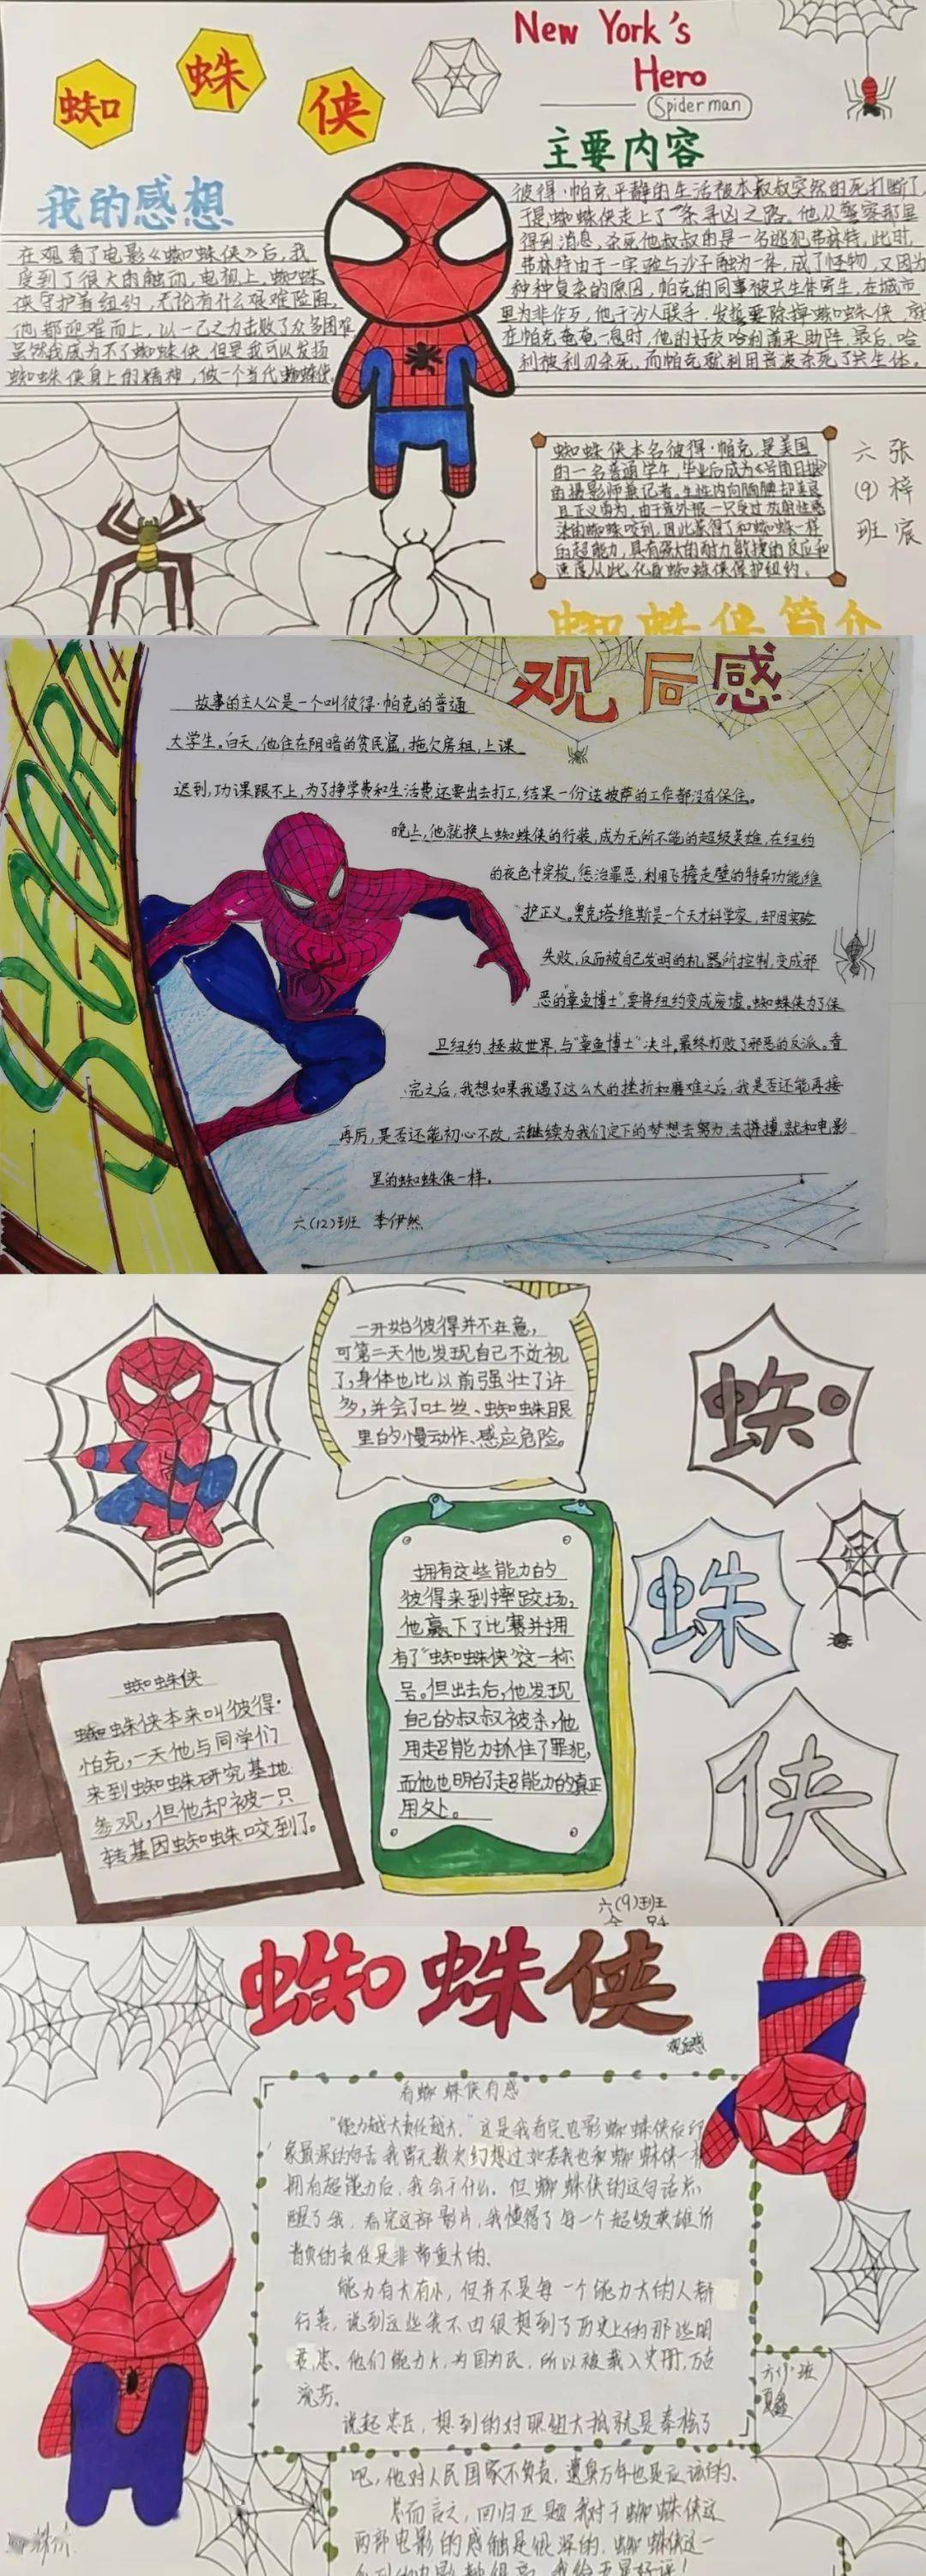 蜘蛛侠
New York's
Hero
Spiderman
主要内容
我的感想
在观看了电影《蜘蛛侠》后，我
度到了很大的触而，电视上，蜘蛛
侠守护着纽约，无论有什么艰难险阻，
他都迎难而上，以一己之力击败了众多困难
虽然我成为不了蜘蛛侠，但是我可以发扬
蜘蛛侠身上的精神，做一个当代蜘蛛侠。
彼得·帕克平静的生活被本叔叔突然的死打断了
于是蜘蛛侠走上了一条寻凶之路。他从警察那里
得到消息，杀死他叔叔的是一名逃犯弗林特，此时，
弗林特由于一实验与沙子融为一体，成了怪物，又因为
种种复杂的原因，帕克的同事被共生体寄生，在城市
里为非作歹，他于沙人联手，发誓要除掉蜘蛛侠，就
在帕克奄奄一息时，他的好友哈利前来助阵，最后，哈
利被利刃杀死，而帕克就利用音波杀死了共生体。
蜘蛛侠本名彼得·帕克，是美国
的一名普通学生，毕业后成为《号角日报》
的摄影师兼记者。生性内向腼腆却善良
且正义勇为，由于意外被一只受过放射性感
染的蜘蛛咬到，因此获得了和蜘蛛一样
的超能力，具有强大的耐力敏捷的反应和
速度从此，化身蜘蛛侠保护纽约。
六(9)班
张梓宸
蜘蛛侠简介
观后感
故事的主人公是一个叫彼得·帕克的普通
大学生。白天，他住在阴暗的贫民窟，拖欠房租，上课
迟到，功课跟不上，为了挣学费和生活费还要出去打工，结果一份送披萨的工作都没有保住。
晚上，他就换上蜘蛛侠的行装，成为无所不能的超级英雄，在纽约
的夜色中穿梭，惩治罪恶，利用飞檐走壁的特异功能维
护正义。奥克塔维斯是一个天才科学家，却因实验
失败，反而被自己发明的机器所控制，变成邪
恶的“章鱼博士”，要将纽约变成废墟。蜘蛛侠为了保
卫纽约，拯救世界，与“章鱼博士”决斗，最终打败了邪恶的反派。看
完之后，我想如果我遇了这么大的挫折和磨难之后，我是否还能再接
再厉，是否还能初心不改，去继续为我们定下的梦想去努力，去拼搏，就和电影
里的蜘蛛侠一样。
六(12)班 李伊然
一开始彼得并不在意，
可第二天他发现自己不近视
了，身体也比以前强壮了许
多，并会了吐丝、蜘蛛眼
里的慢动作、感应危险。
蜘
蛛
侠
拥有这些能力的
彼得来到摔跤场，
他赢下了比赛并拥
有了“蜘蛛侠”这一称
号。但出去后，他发现
自己的叔叔被杀，他
用超能力抓住了罪犯，
而他也明白了超能力的真正
用处。
蜘蛛侠
蜘蛛侠本来叫彼得·
怕克，一天他与同学们
来到蜘蛛研究基地
参观，但他却被一只
转基因蜘蛛咬到了。
六(9)班
蜘蛛侠
观后感
看蜘蛛侠有感
“能力越大责任越大。”这是我看完电影蜘蛛侠后印
象最深的句话，我曾无数次幻想过如若我也和蜘蛛侠一样
拥有超能力后，我会干什么。但蜘蛛侠的这句话点
醒了我，看完这部影片，我懂得了每一个超级英雄所
背负的责任是非常重大的。
能力有大有小，但并不是每一个能力大的人都
行善，说到这些我不由很想到了历史上的那些明
君忠。他们能力大，为国为民，所以被载入史册，万古
流芳。
说起忠臣，想到的对职组大抵就是秦桧了
吧，他对人民国家不负责，遗臭万年也是应该的。
总而言之，回归正题我对于蜘蛛侠这
两部电影的感触是很深的，蜘蛛侠这一